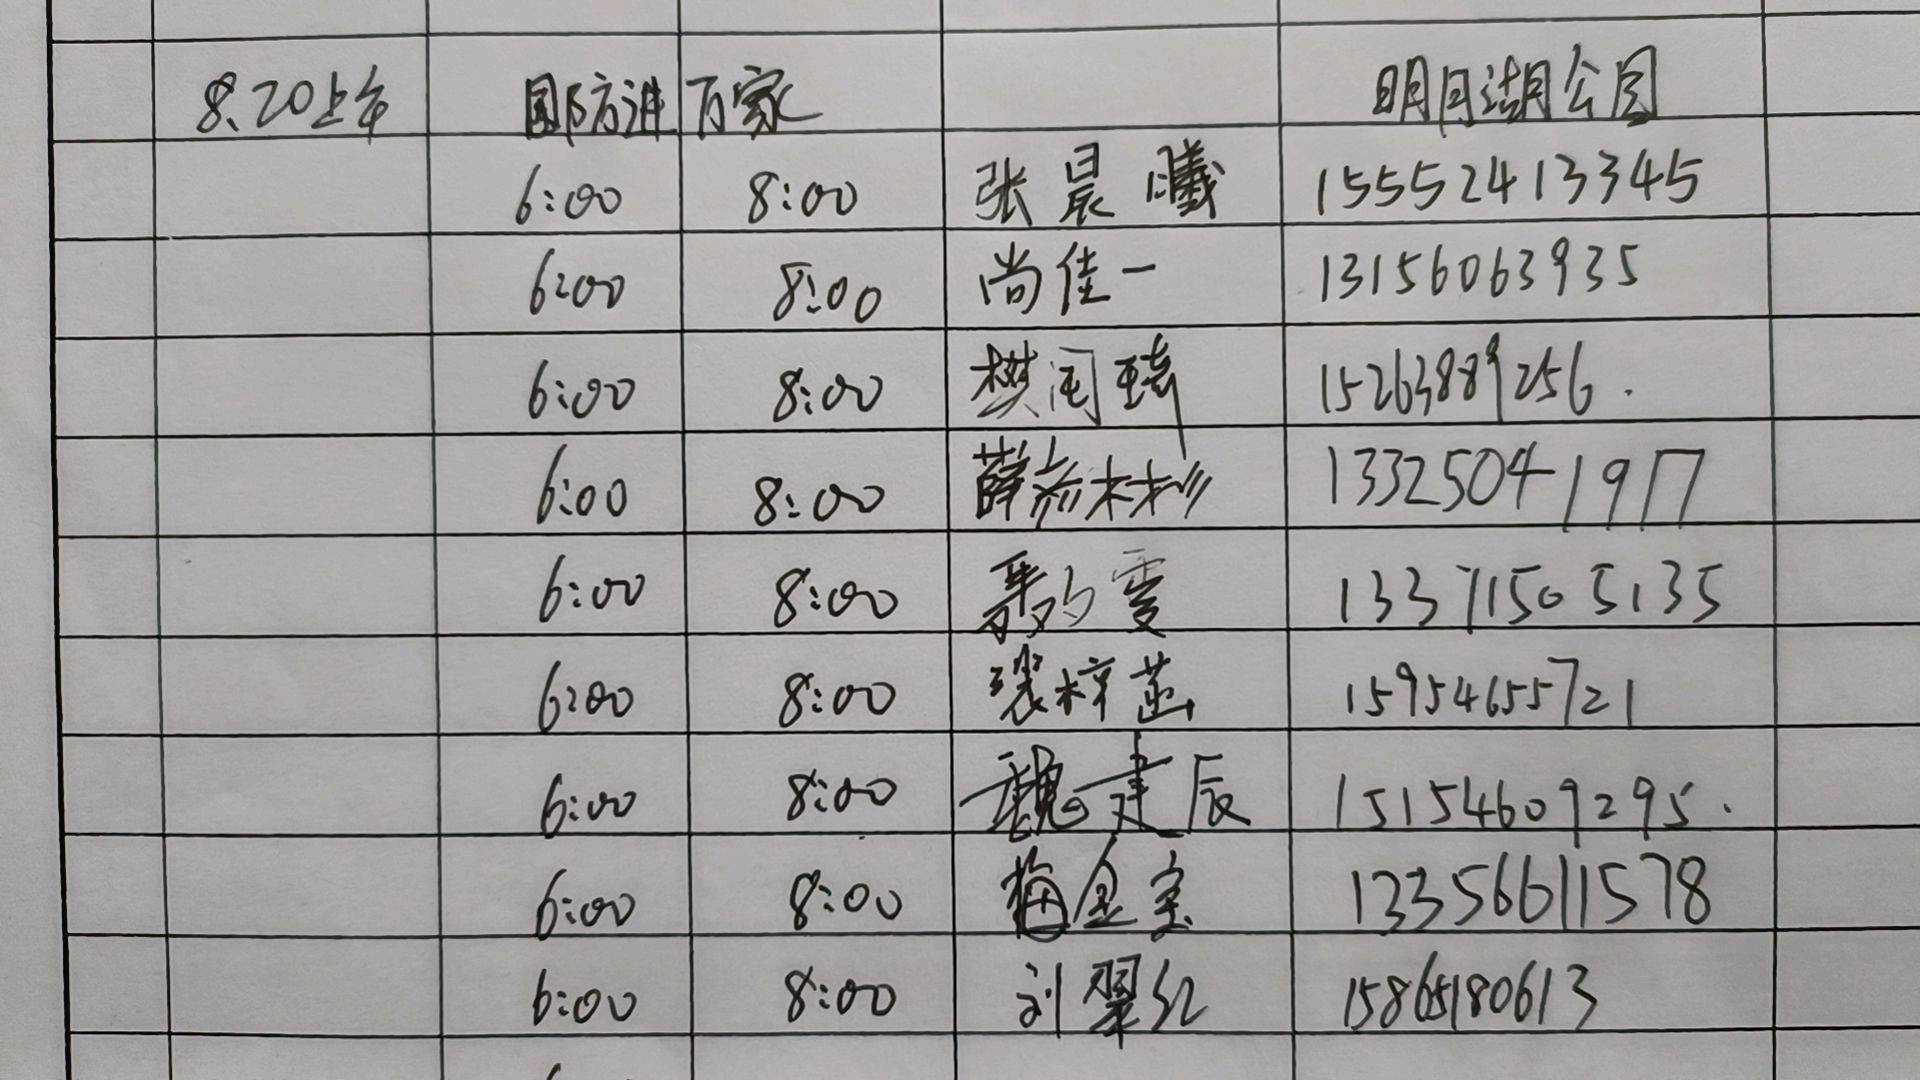 8.20上午 国防进万家 明月湖公园
6:00 8:00 张晨曦 15552413345
6:00 8:00 尚佳一 13156063935
6:00 8:00 樊闰琦 15263889256.
6:00 8:00 薛彬彬 13325041917
6:00 8:00 雯 13371505135
6:00 8:00 张梓菡 15954655721
6:00 8:00 魏建辰 15154609295.
6:00 8:00 梅金宝 13356611578
6:00 8:00 刘翠红 15865180613